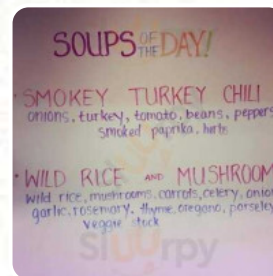 SOUPS OF THE DAY!
• SMOKEY TURKEY CHILI
onions, turkey, tomato, beans, peppers
smoked paprika, herbs
• WILD RICE AND MUSHROOM
wild rice, mushrooms, carrots, celery, onion
garlic, rosemary, thyme, oregano, parsley
veggie stock
Sluurpy